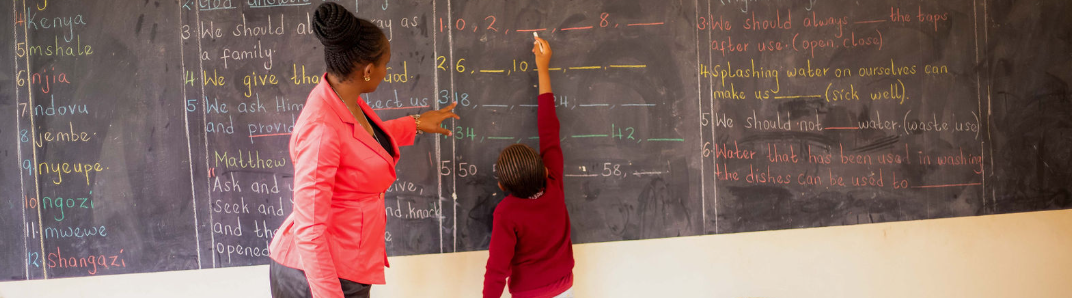 4 kenya
5 mshale
6 njia
7 ndovu
8 jembe.
9 nyeupe.
10 ngozi
11. mwewe
12. Shangazi
2. God answers
3. We should as
a family.
4. We give God.
5. We ask Him tect us
and
Matthew
"Ask and
Seek and nd, Knock
and the
opened
1. 0, 2, __ __ 8, __
2. 6, __, 10 __, __, __
3. 48, __, 4, __, __
34, __, __, 42, __
5. 50 __ 58, __
3. We should always __ the taps
after use. (open, close)
4. Splashing water on ourselves can
make us ____ (sick well).
5. We should not ___ water. (waste, use)
6. Water that has been used in washing
the dishes can be used to ______